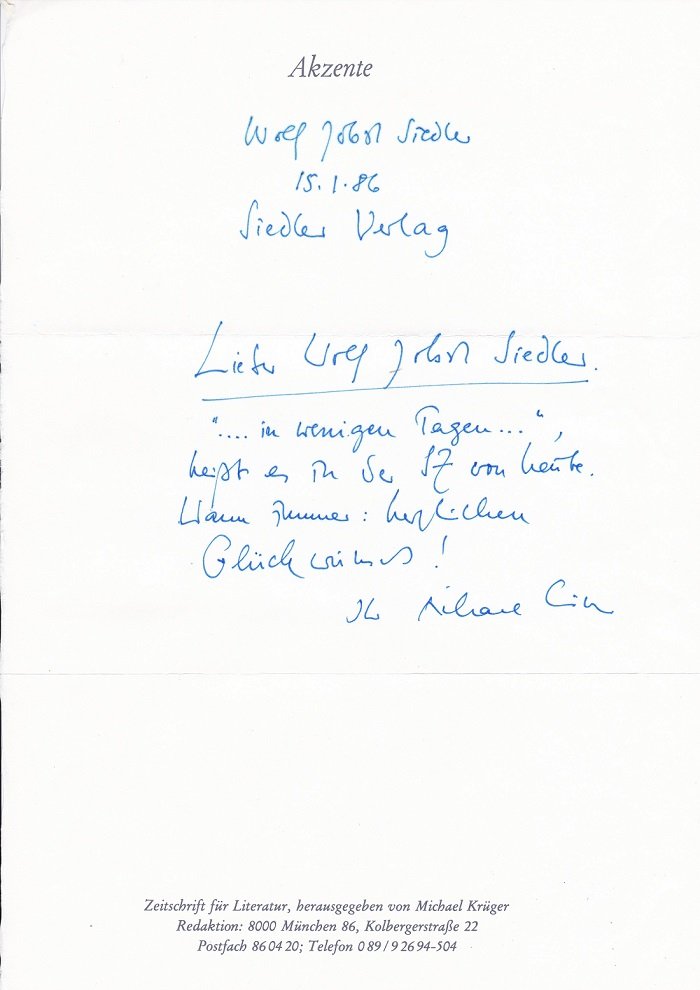 Akzente
Wolf Jobst Siedler
15.1.86
Siedler Verlag
Lieber Wolf Jobst Siedler.
".... in wenigen Tagen...",
heißt es in der SZ von heute.
Wann immer: herzlichen
Glückwunsch!
Ihr Michael
Zeitschrift für Literatur, herausgegeben von Michael Krüger
Redaktion: 8000 München 86, Kolbergerstraße 22
Postfach 86 04 20; Telefon 0 89 / 9 26 94-504